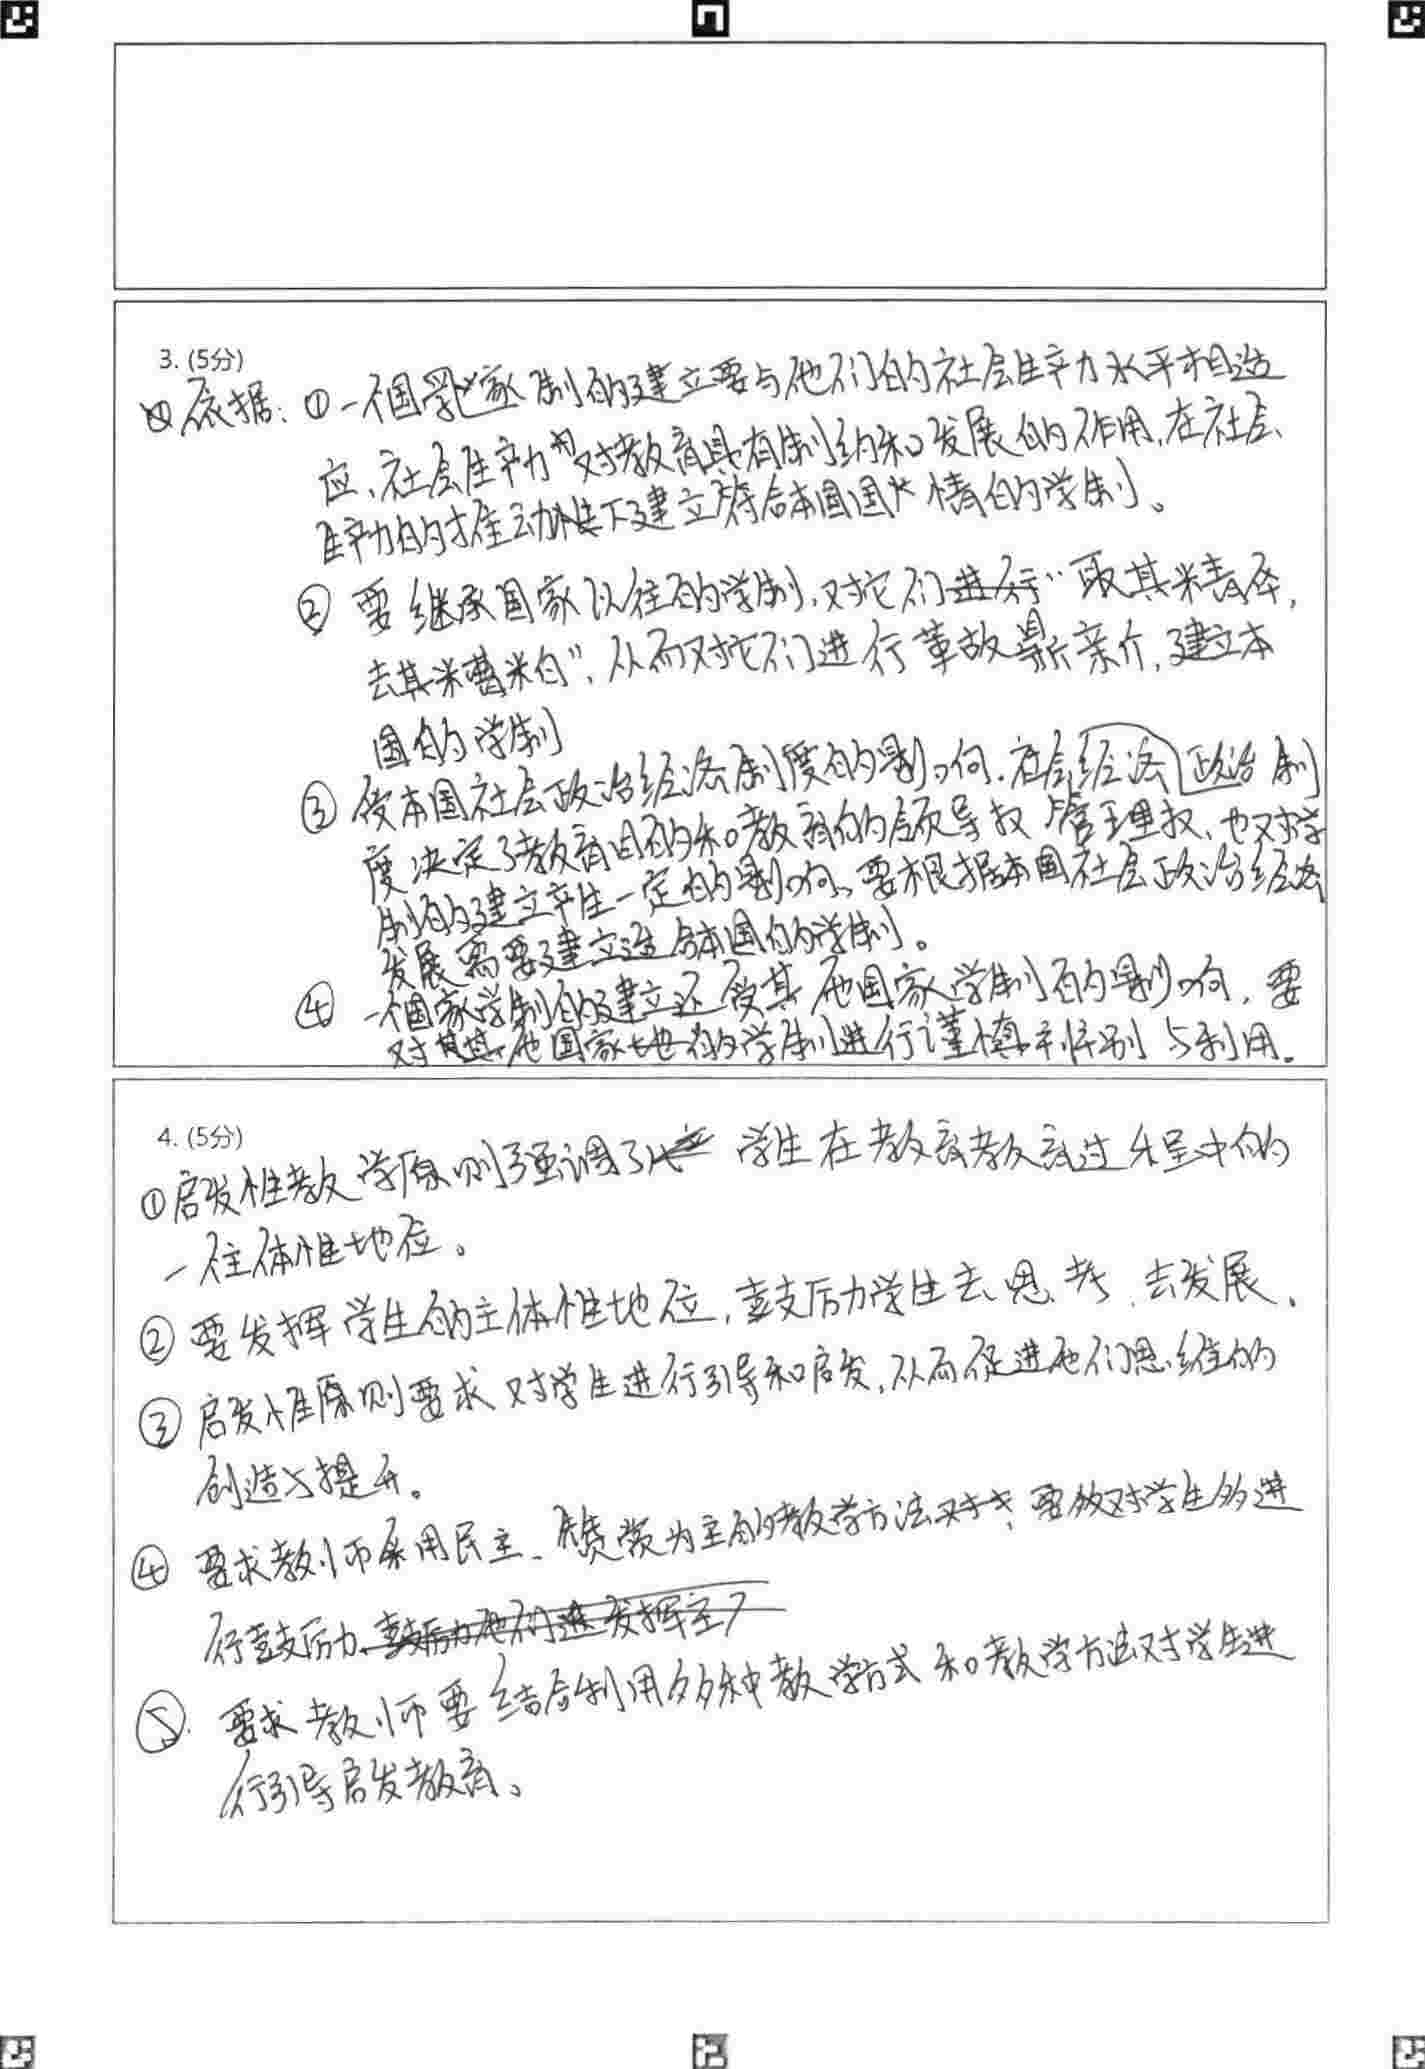 3. (5分)
依据：①一个国家学制的建立要与他们的社会生产力水平相适
应，社会生产力对教育具有制约和发展的作用，在社会
生产力的推动下建立符合本国国情的学制。
② 要继承国家以往的学制，对它们进行“取其精华，
去其糟粕”，从而对它们进行革故鼎新，建立本
国的学制
③ 受本国社会政治经济制度的影响，社会政治经济制
度决定了教育目的和教育的领导权 管理权、也对学
制的建立产生一定的影响，要根据本国社会政治经济
发展需要建立适合本国的学制。
④ 一个国家学制的建立还受其他国家学制的影响，要
对其他国家的学制进行谨慎辨别与利用。
4. (5分)
①启发性教学原则强调了 学生在教育教育过程中的
主体性地位。
② 要发挥学生的主体性地位，鼓励学生去思考、去发展。
③ 启发性原则要求对学生进行引导和启发，从而促进他们思维的
创造与提升。
④ 要求教师采用民主、赞赏为主的教学方法对 要 对学生多进
行鼓励。
⑤ 要求教师要结合利用多种教学方式和教学方法对学生进
行引导启发教育。